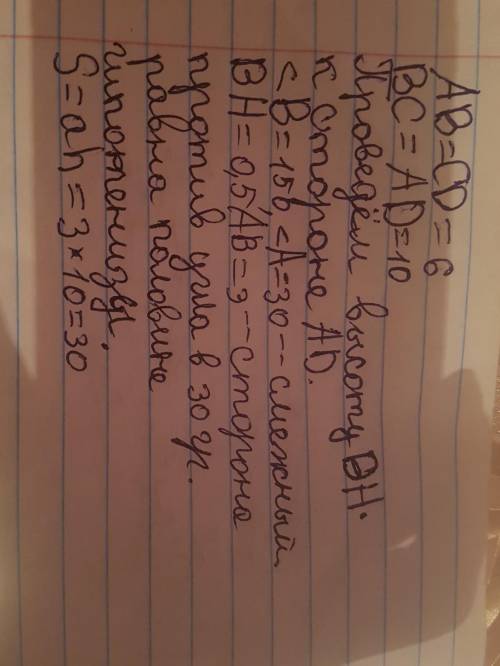 AB=CD=6
BC=AD=10
Проведём высоту BH.
к стороне AD.
<B=150 <A=30--смежный
BH=0,5AB=3--сторона
против угла в 30 гр.
равна половине
гипотенизвы.
S=ah=3*10=30